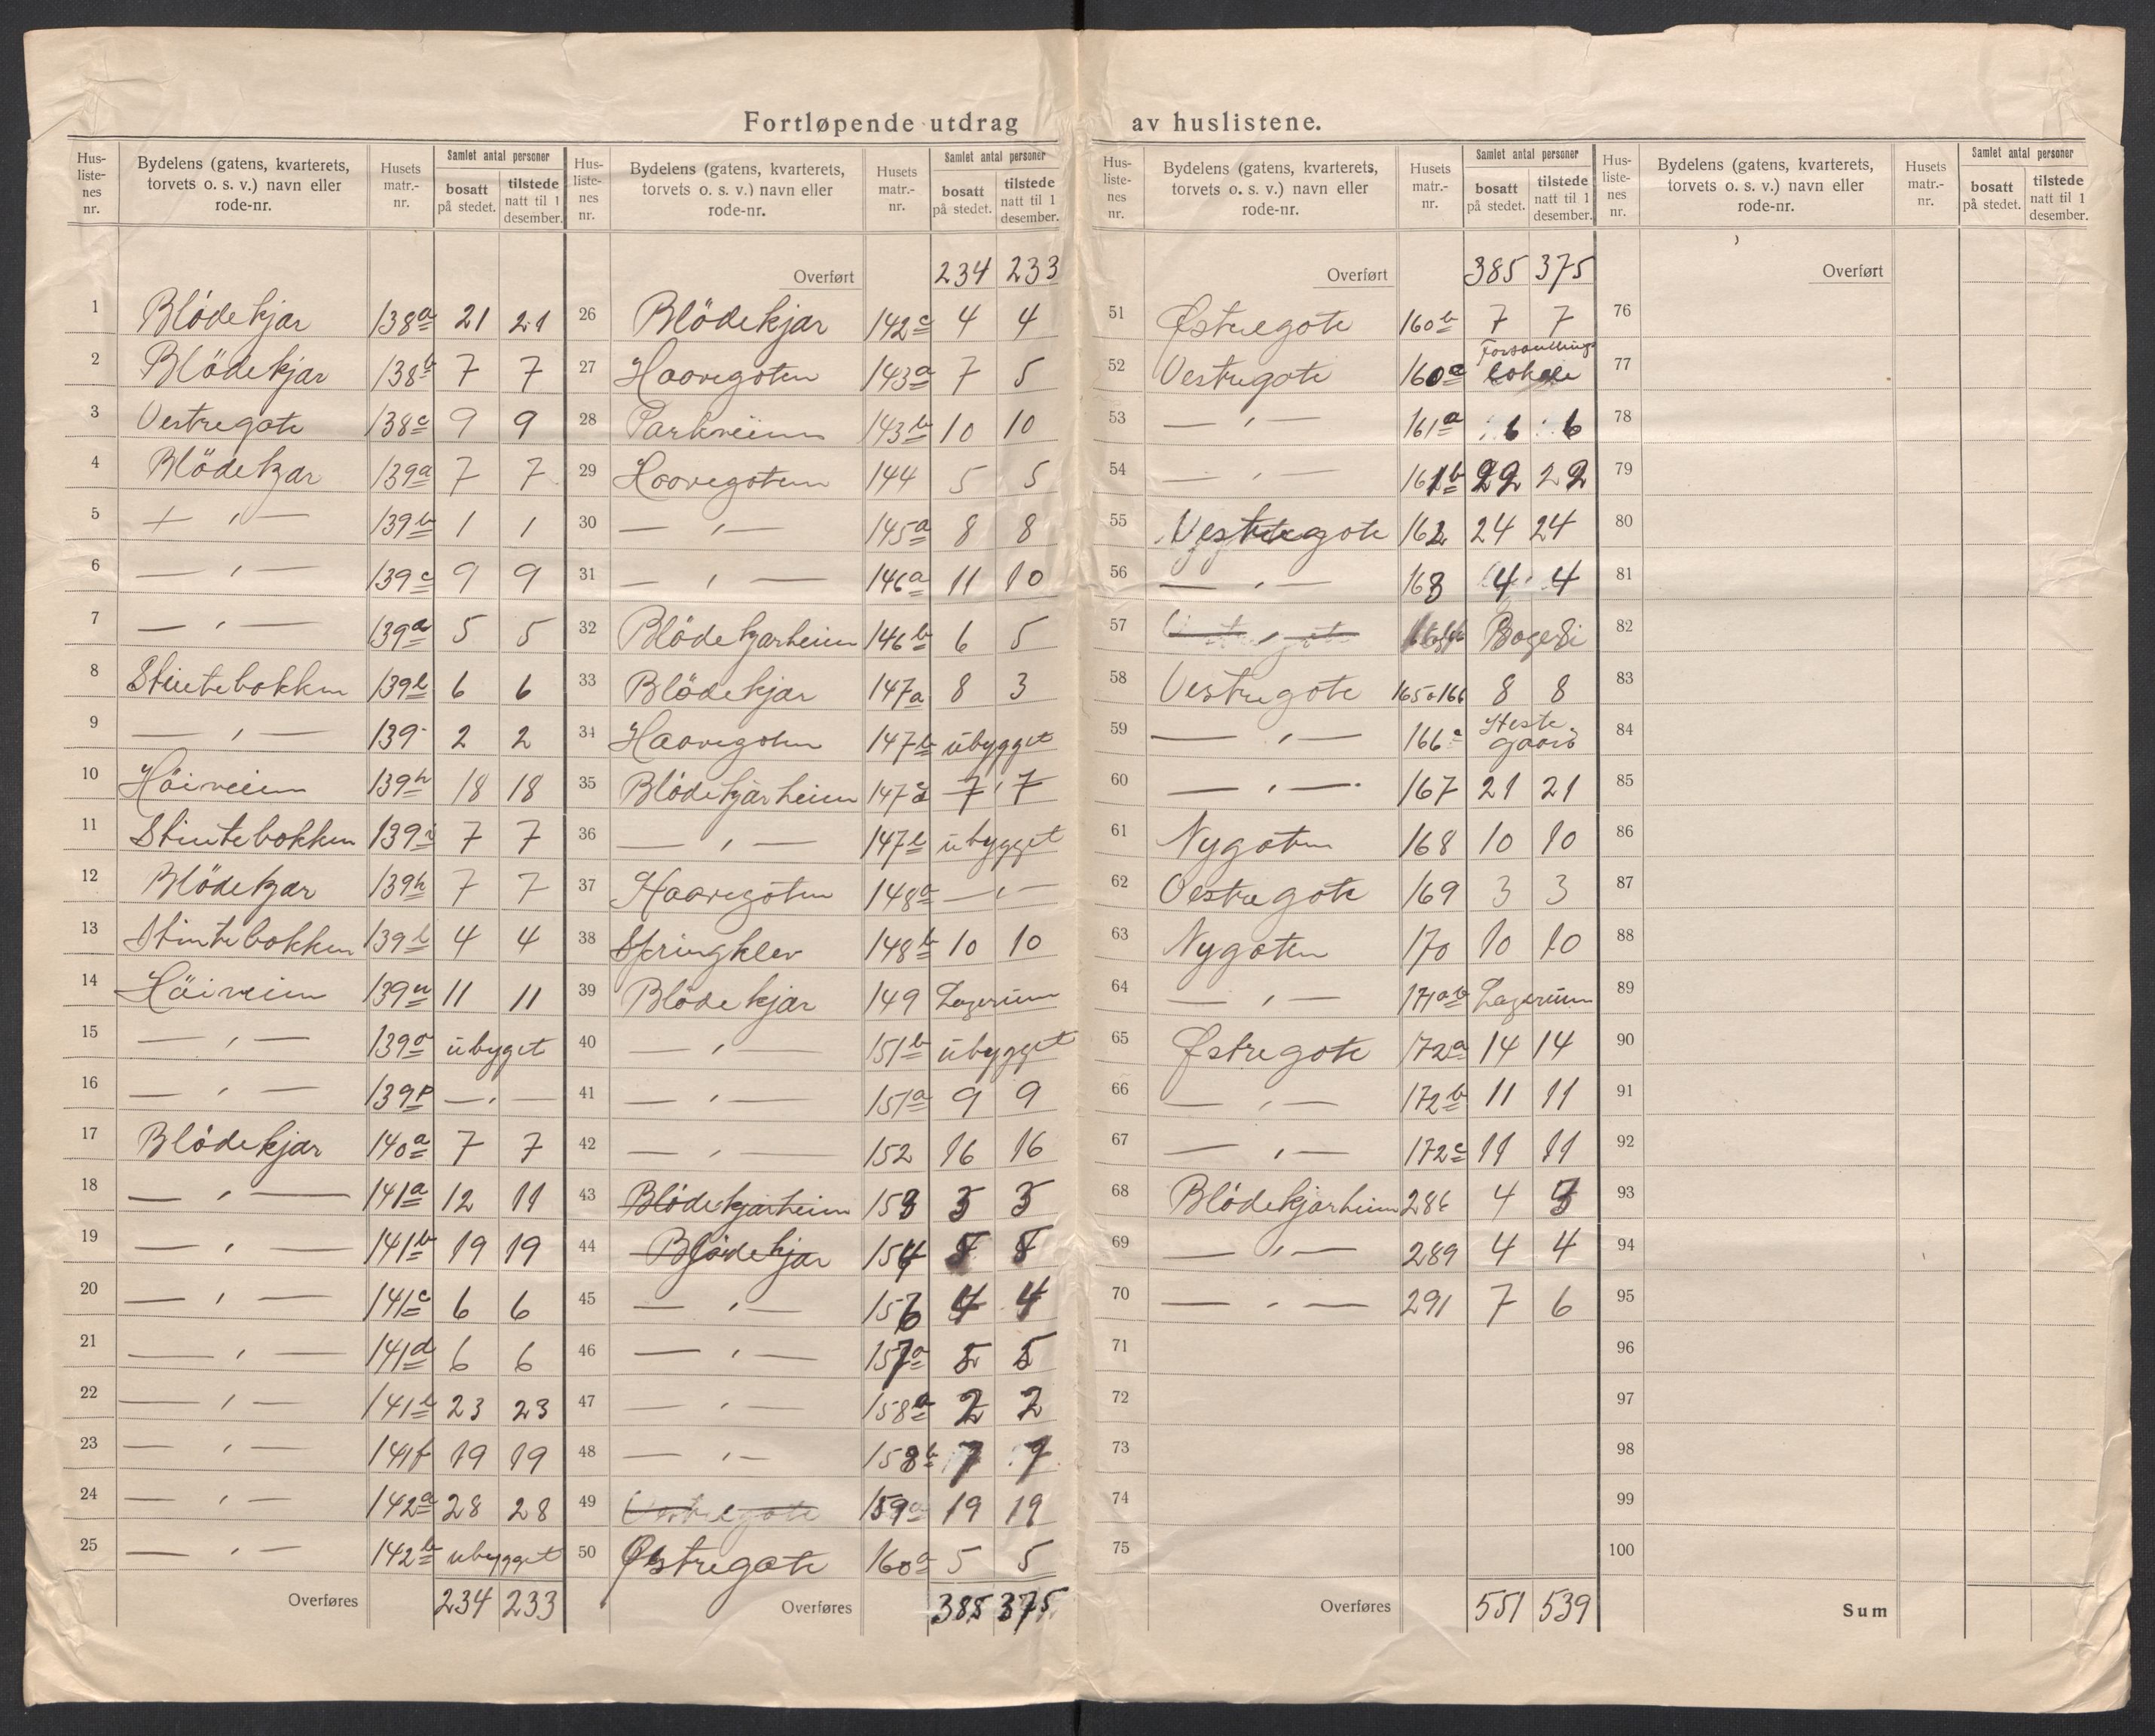 Fortløpende utdrag av huslistene.
Hus-liste-nes nr. | Bydelens (gatens, kvarterets, torvets o. s. v.) navn eller rode-nr. | Husets matr.-nr. | Samlet antal personer | bosatt på stedet. | tilstede natt til 1 desember.
1 Blödekjar 138a 21 21
2 Blödekjar 138b 7 7
3 Vestregate 138c 9 9
4 Blödekjar 139a 7 7
5 — " — 139b 1 1
6 — " — 139c 9 9
7 — " — 139d 5 5
8 Stintebakken 139e 6 6
9 — " — 139 2 2
10 Höiveien 139h 18 18
11 Stintebakken 139i 7 7
12 Blödekjar 139k 7 7
13 Stintebakken 139l 4 4
14 Höiveien 139n 11 11
15 — " — 139o ubyget
16 — " — 139p — " —
17 Blödekjar 140a 7 7
18 — " — 141a 12 11
19 — " — 141b 19 19
20 — " — 141c 6 6
21 — " — 141d 6 6
22 — " — 141e 23 23
23 — " — 141f 19 19
24 — " — 142a 28 28
25 — " — 142b ubygget
Overføres 234 233
Hus-liste-nes nr. | Bydelens (gatens, kvarterets, torvets o. s. v.) navn eller rode-nr. | Husets matr.-nr. | Samlet antal personer | bosatt på stedet. | tilstede natt til 1 desember.
Overført 234 233
26 Blödekjar 142c 4 4
27 Haavegaten 143a 7 5
28 Parkveien 143b 10 10
29 Haavegaten 144 5 5
30 — " — 145a 8 8
31 — " — 146a 11 10
32 Blödekjarheien 146b 6 5
33 Blödekjar 147a 8 3
34 Haavegaten 147b ubygget
35 Blödekjarheien 147d 7 7
36 — " — 147e ubygget
37 Haavegaten 148a — " —
38 Springklev 148b 10 10
39 Blödekjar 149 Lagerrum
40 — " — 151b ubygget
41 — " — 151a 9 9
42 — " — 152 16 16
43 Blödekjarheien 153 3 3
44 Blödekjar 154 8 8
45 — " — 156 4 4
46 — " — 157a 5 5
47 — " — 158a 2 2
48 — " — 158b 7 7
49 Vestregate 159a 19 19
50 Østregate 160a 5 5
Overføres 385 375
Hus-liste-nes nr. | Bydelens (gatens, kvarterets, torvets o. s. v.) navn eller rode-nr. | Husets matr.-nr. | Samlet antal personer | bosatt på stedet. | tilstede natt til 1 desember.
Overført 385 375
51 Østregate 160b 7 7
52 Vestregate 160c Forsamlings lokale
53 — " — 161a 6 6
54 — " — 161b 22 22
55 Vestregate 162 24 24
56 — " — 163 4 4
57 Bageri
58 Vestregate 165 o 166 8 8
59 — " — 166c Heste gaard
60 — " — 167 21 21
61 Nygaten 168 10 10
62 Vestregate 169 3 3
63 Nygaten 170 10 10
64 — " — 171ab Lagerrum
65 Østregate 172a 14 14
66 — " — 172b 11 11
67 — " — 172c 11 11
68 Blödekjarheien 286 4 3
69 — " — 289 4 4
70 — " — 291 7 6
71
72
73
74
75
Overføres 551 539
Hus-liste-nes nr. | Bydelens (gatens, kvarterets, torvets o. s. v.) navn eller rode-nr. | Husets matr.-nr. | Samlet antal personer | bosatt på stedet. | tilstede natt til 1 desember.
Overført
76
77
78
79
80
81
82
83
84
85
86
87
88
89
90
91
92
93
94
95
96
97
98
99
100
Sum